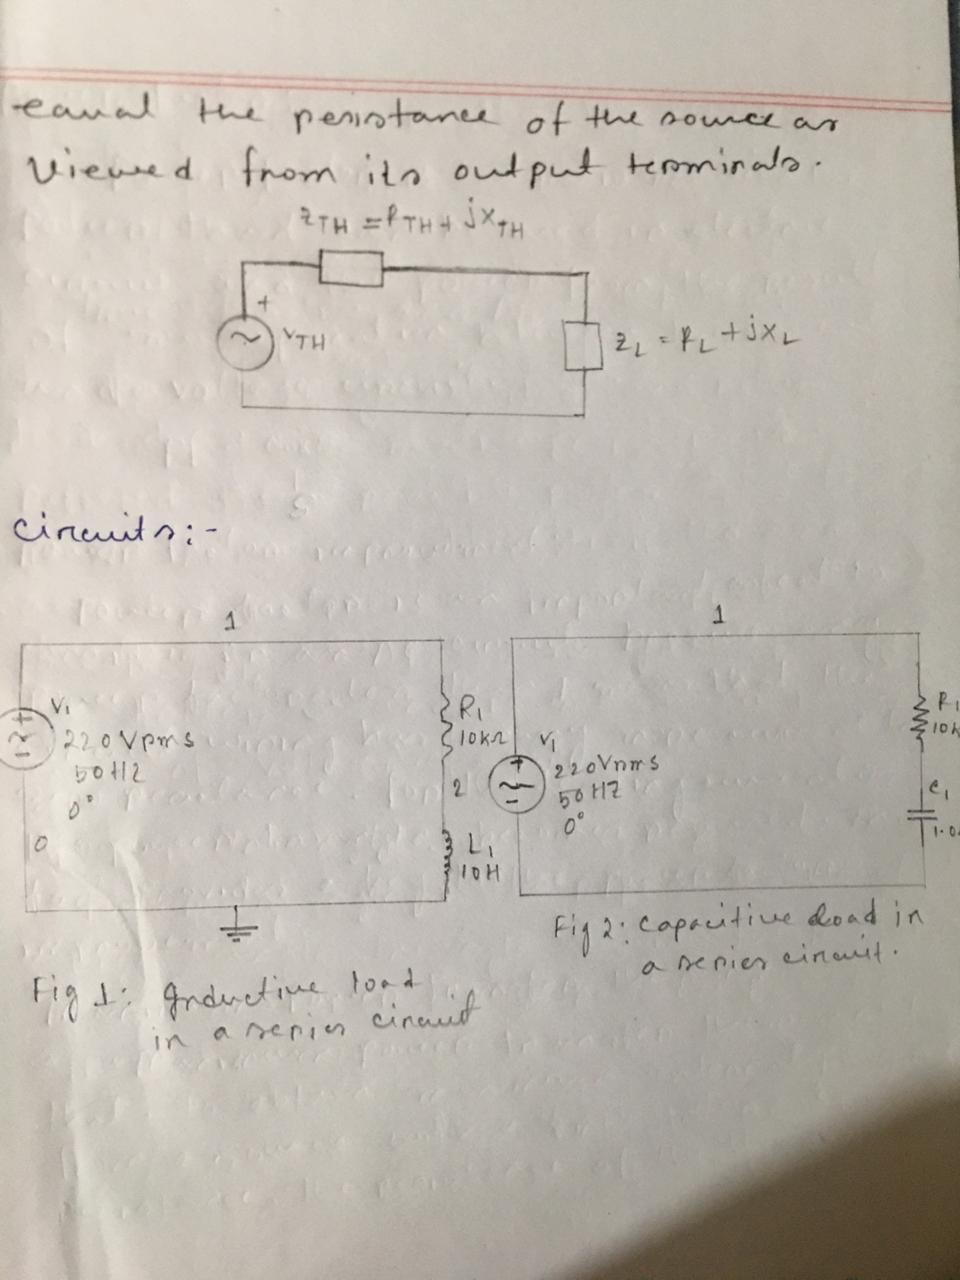 equal the resistance of the source as
viewed from its output terminals.
ZTH = RTH + jXTH
+
VTH
ZL = RL + jXL
Circuits:-
1
V1
220 Vrms
50 HZ
0°
0
R1
10kΩ
2
L1
10H
Fig 1: Inductive load
in a series circuit
1
V1
220 Vrms
50 HZ
0°
R1
10k
C1
1.0
Fig 2: Capacitive load in
a series circuit.